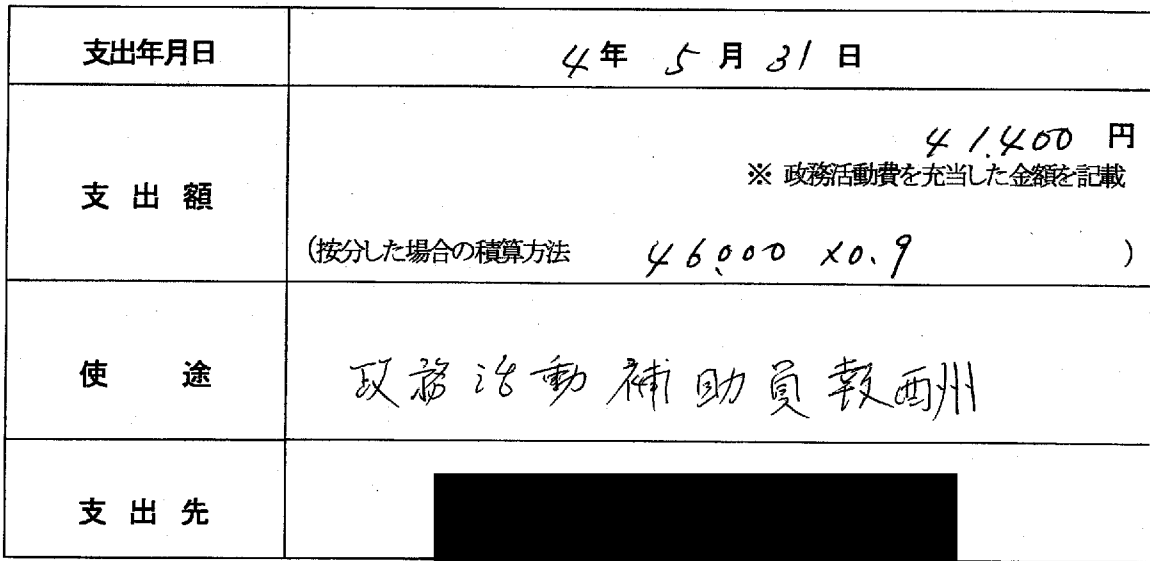 支出年月日 4年 5月 31日
支出額
41,400 円
※ 政務活動費を充当した金額を記載
(按分した場合の積算方法 46,000 ×0.9 )
使途 政務活動補助員報酬
支出先